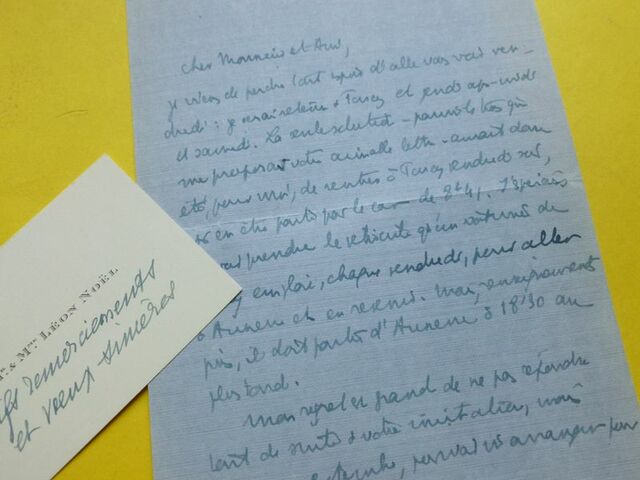 Cher Monsieur et Ami,
je viens de perdre tout espoir d'aller vous voir ven-
dredi : je serai retenu à Toucy et jeudi après-midi
et samedi. La seule solution - parmi les trois que
me proposait votre aimable lettre - aurait donc
été, pour moi, de rentrer à Toucy vendredi soir,
en être parti par le car de 2h41. J'espérais
prendre le véhicule qu'un voiturier de
emploi, chaque vendredi, pour aller
à Auxerre et en revenir. Mais, renseignements
pris, il doit partir d'Auxerre à 18h30 au
plus tard.
Mon regret est grand de ne pas répondre
tout de suite à votre invitation, mais
pourrions arranger pour
M. & Mme LÉON NOËL
remerciements
et voeux sincères